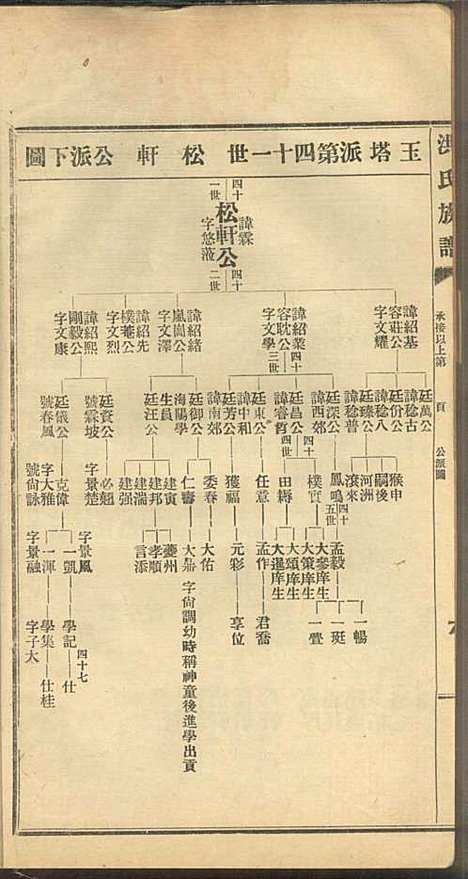 洪氏族譜
承接以上第 頁 公派圖
玉塔派第四十一世松軒公派下圖
四十一世
諱霖
松軒公
字悠濱
四十二世
諱紹基
容莊公
字文耀
諱紹業
容耽公
字文學
四十三世
諱紹緒
嵐崗公
字文澤
諱紹先
樸菴公
字文烈
諱紹熙
剛毅公
字文康
廷萬公
諱稔古
廷份公
諱稔八
廷臻公
諱稔普
廷深公
諱西郊
四十四世
廷昌公
諱睿育
廷東公
諱中和
廷芳公
諱南郊
廷御公
海陽學
生員
廷汪公
廷資公
號霖坡
廷儀公
號春風
猴申
嗣後
河洲
滾來
鳳鳴
四十五世
樸實
田縣
任意
獲福
委春
仁壽
建寅
建邦
建湍
建强
必魁
字景楚
克偉
字大雅
號尙詠
孟毅
大參庠生
大策庠生
大頌庠生
大暹庠生
孟作
元彩
大佑
大鼎 字尙調幼時稱神童後進學出貢
夔州
孝順
言添
字景鳳
一凱
一渾
字景融
一暢
一珽
一疊
君喬
享位
四十七
學記
仕
學集
仕桂
字子大